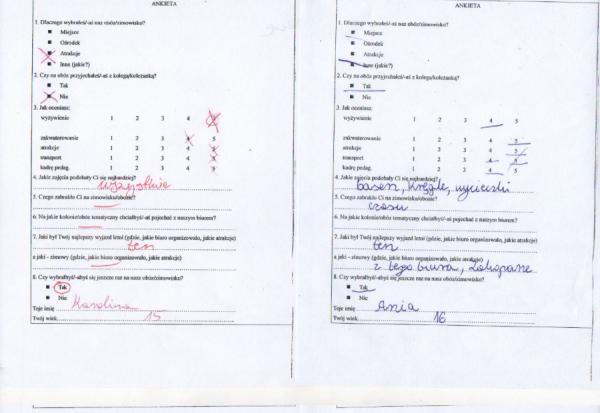 ANKIETA
1. Dlaczego wybrałeś/-aś nasz obóz/zimowisko?
Miejsce
Ośrodek
Atrakcje
Inne (jakie?)
2. Czy na obóz przyjechałeś/-aś z kolegą/koleżanką?
Tak
Nie
3. Jak oceniasz:
wyżywienie 1 2 3 4 5
zakwaterowanie 1 2 3 4 5
atrakcje 1 2 3 4 5
transport 1 2 3 4 5
kadrę pedag. 1 2 3 4 5
4. Jakie zajęcia podobały Ci się najbardziej?
wszystkie
5. Czego zabrakło Ci na zimowisku/obozie?
6. Na jakie kolonie/obóz tematyczny chciałbyś/-aś pojechać z naszym biurem?
7. Jaki był Twój najlepszy wyjazd letni (gdzie, jakie biuro organizowało, jakie atrakcje)
ten
a jaki - zimowy (gdzie, jakie biuro organizowało, jakie atrakcje)
8. Czy wybrałbyś/-abyś się jeszcze raz na nasz obóz/zimowisko?
Tak
Nie
Toje imię Karolina
Twój wiek 15
ANKIETA
1. Dlaczego wybrałeś/-aś nasz obóz/zimowisko?
Miejsce
Ośrodek
Atrakcje
Inne (jakie?)
2. Czy na obóz przyjechałeś/-aś z kolegą/koleżanką?
Tak
Nie
3. Jak oceniasz:
wyżywienie 1 2 3 4 5
zakwaterowanie 1 2 3 4 5
atrakcje 1 2 3 4 5
transport 1 2 3 4 5
kadrę pedag. 1 2 3 4 5
4. Jakie zajęcia podobały Ci się najbardziej?
basen, kręgle, wycieczki
5. Czego zabrakło Ci na zimowisku/obozie?
czasu
6. Na jakie kolonie/obóz tematyczny chciałbyś/-aś pojechać z naszym biurem?
7. Jaki był Twój najlepszy wyjazd letni (gdzie, jakie biuro organizowało, jakie atrakcje)
ten
a jaki - zimowy (gdzie, jakie biuro organizowało, jakie atrakcje)
z tego biura, Zakopane
8. Czy wybrałbyś/-abyś się jeszcze raz na nasz obóz/zimowisko?
Tak
Nie
Toje imię Ania
Twój wiek 16